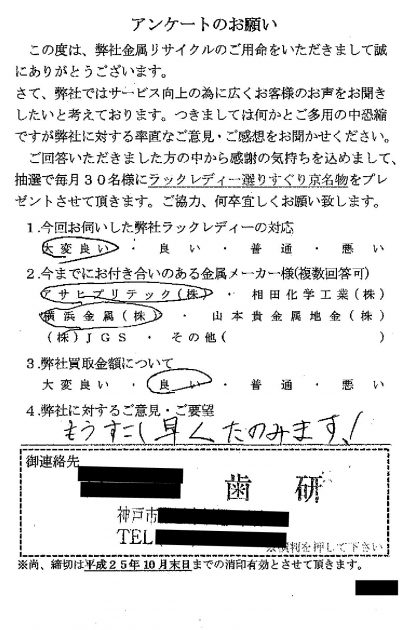 アンケートのお願い
この度は、弊社金属リサイクルのご用命をいただきまして誠
にありがとうございます。
さて、弊社ではサービス向上の為に広くお客様のお声をお聞き
したいと考えております。つきましては何かとご多用の中恐縮
ですが弊社に対する率直なご意見・ご感想をお聞かせください。
ご回答いただきました方の中から感謝の気持ちを込めまして、
抽選で毎月30名様にラックレディー選りすぐり京名物をプレ
ゼントさせて頂きます。ご協力、何卒宜しくお願い致します。
1.今回お伺いした弊社ラックレディーの対応
大変良い ・ 良い ・ 普通 ・ 悪い
2.今までにお付き合いのある金属メーカー様(複数回答可)
アサヒプリテック(株) ・ 相田化学工業(株)
横浜金属(株) ・ 山本貴金属地金(株)
(株)JGS ・ その他( )
3.弊社買取金額について
大変良い ・ 良い ・ 普通 ・ 悪い
4.弊社に対するご意見・ご要望
もうすこし早くたのみます!
御連絡先
歯研
神戸市
TEL
を押して下さい
※尚、締切は平成25年10月末日までの消印有効とさせて頂きます。